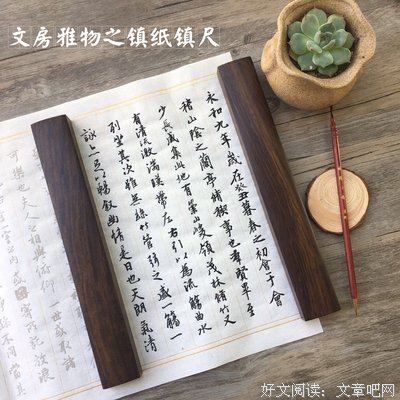 文房雅物之镇纸镇尺
永和九年歲在癸丑暮春之初會于會
稽山陰之蘭亭脩稧事也羣賢畢至
少長咸集此地有崇山峻領茂林脩竹又
有清流激湍暎帶左右引以為流觴曲水
列坐其次雖無絲竹管弦之盛一觴一
詠亦足以暢敘幽情是日也天朗氣清
可樂也夫人之相與俯仰
一世或取諸
放浪
不同當其
好文阅读：文章吧网